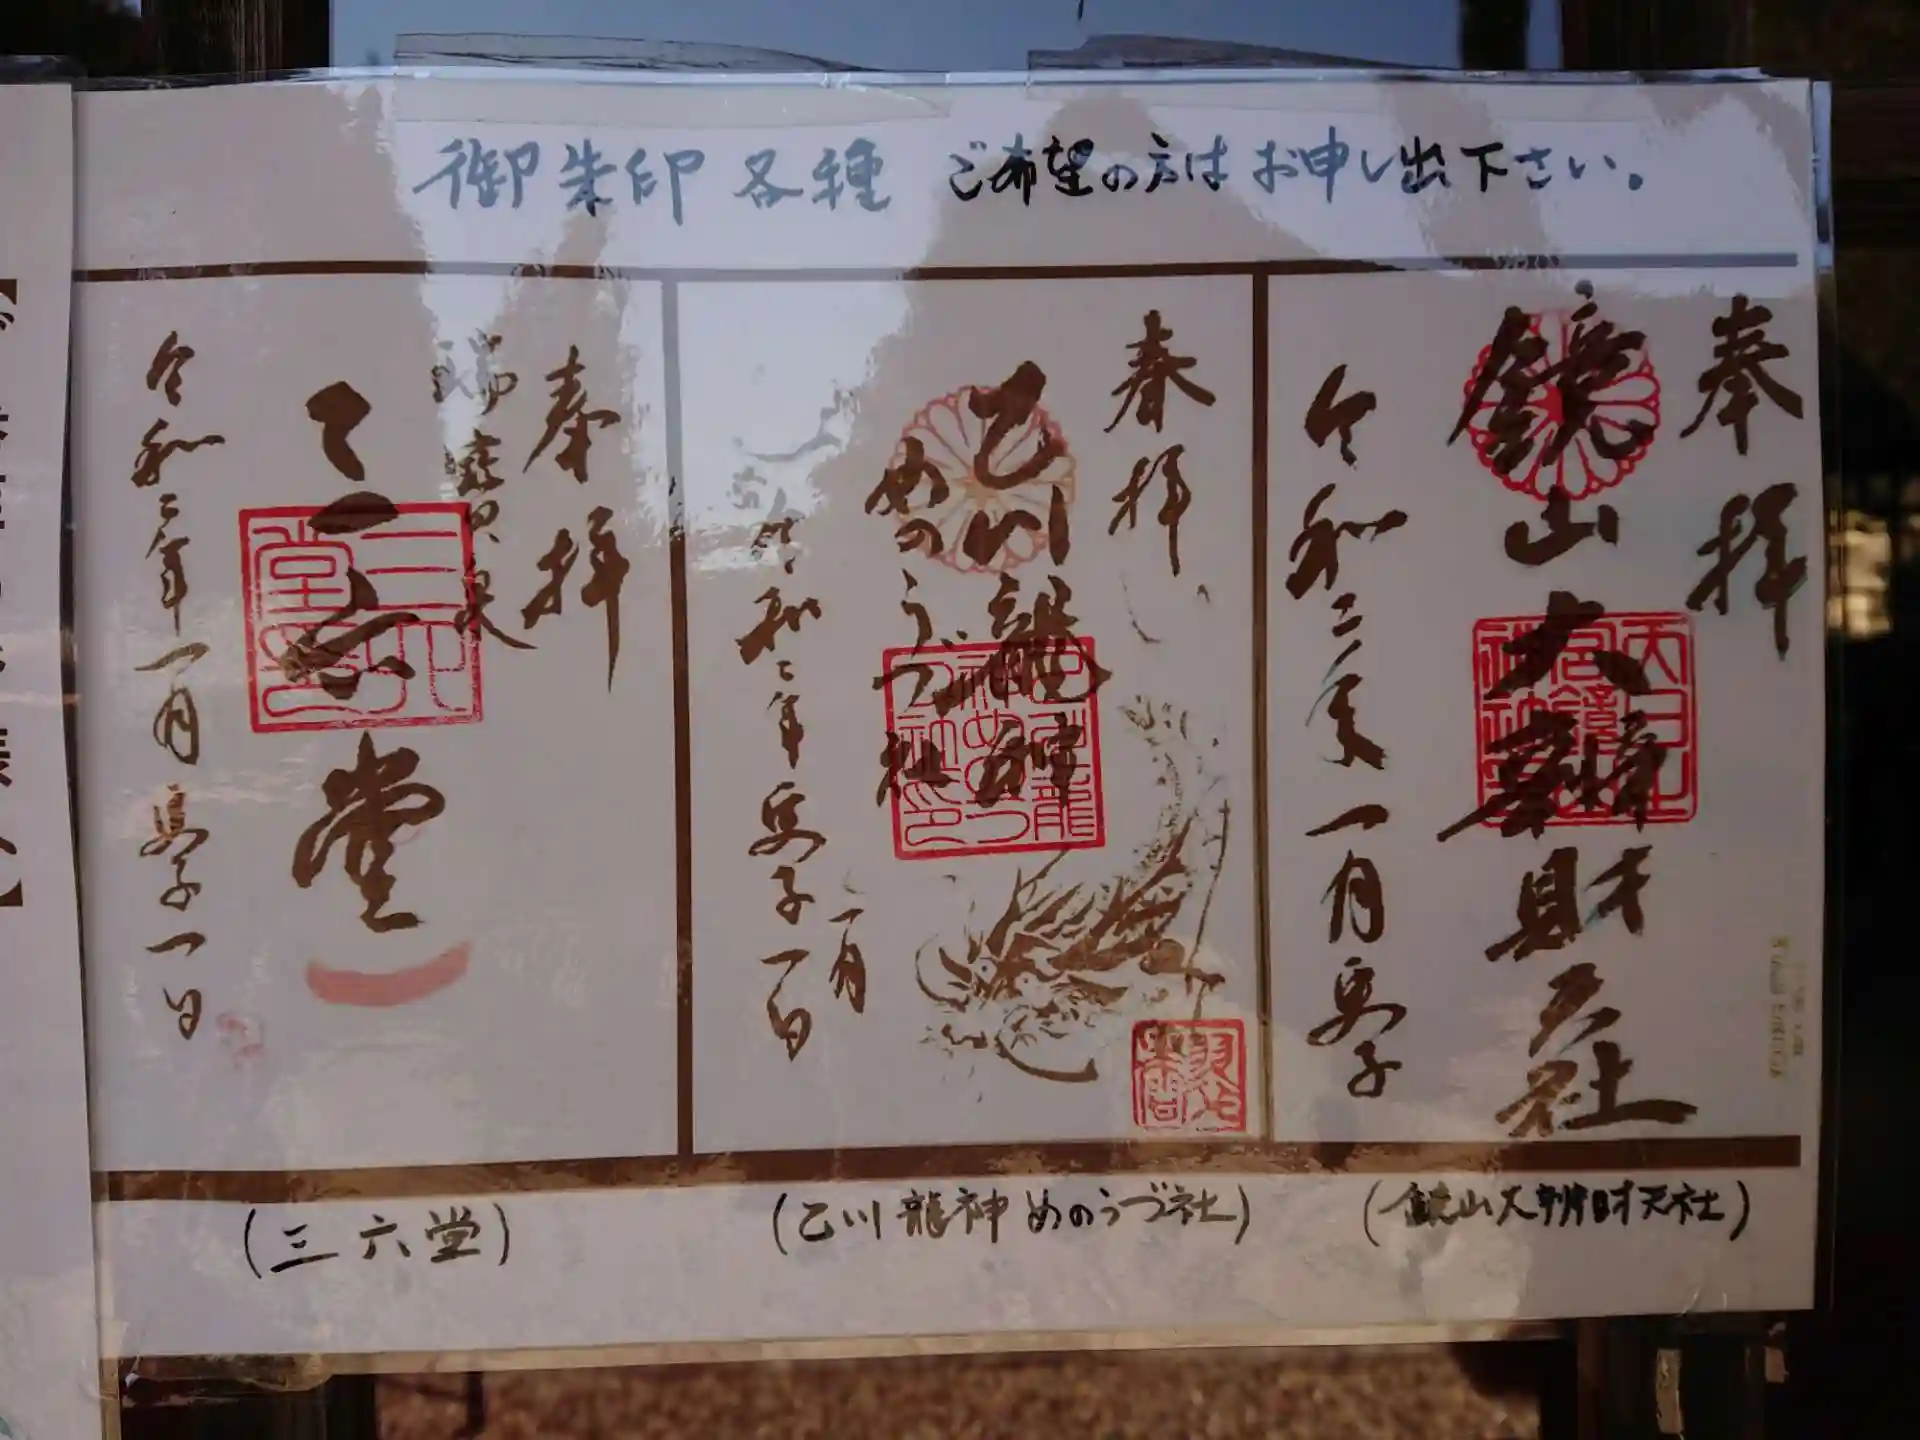 御朱印各種 ご希望の方はお申し出下さい。
奉拝
鏡山大辯財天社
令和二年一月庚子
奉拝
乙川龍神
めのうづ社
令和二年庚子一日
一月
奉拝
三六堂
令和二年一月庚子一日
(三六堂)
(乙川龍神めのうづ社)
(鏡山大辨財天社)